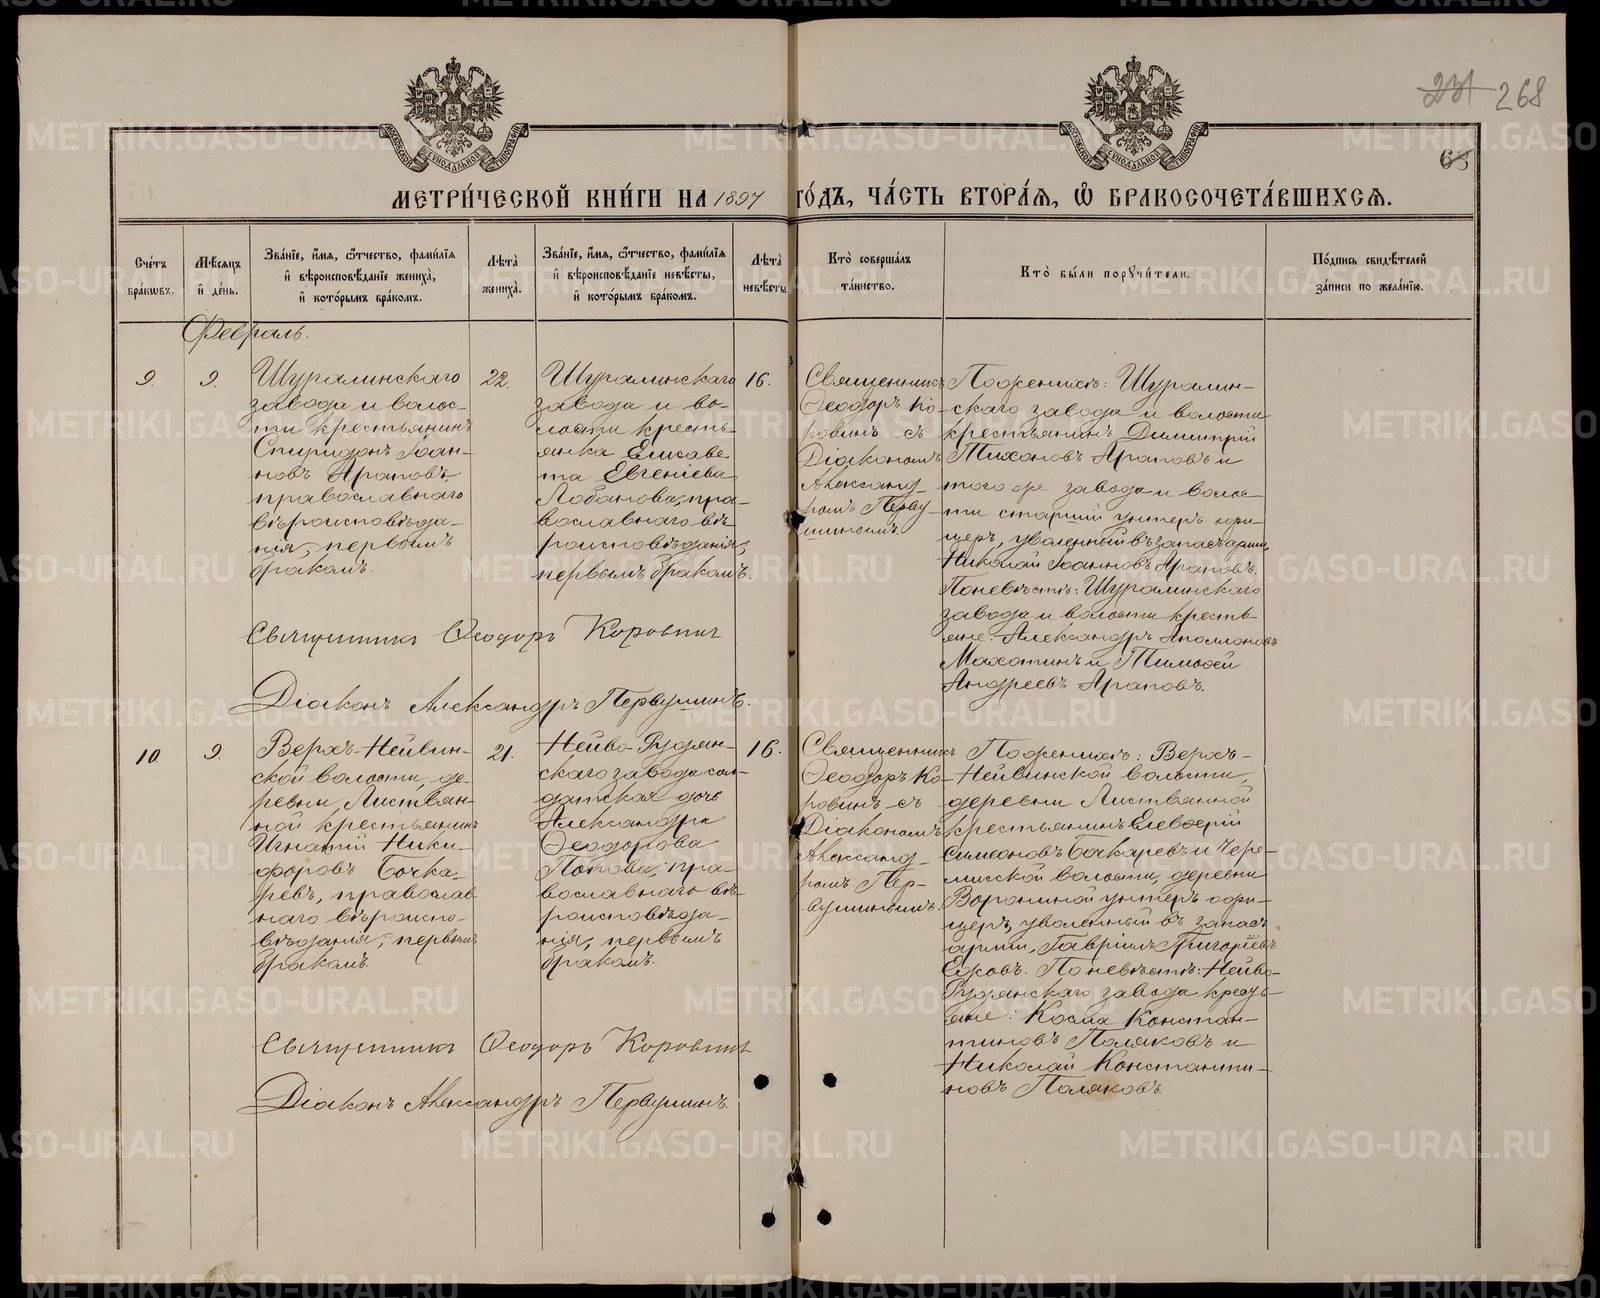 231 268
63
МОСКОВСКОЙ СѴНОДАЛЬНОЙ ТИПОГРАФІИ
МОСКОВСКОЙ СѴНОДАЛЬНОЙ ТИПОГРАФІИ
МЕТРИ́ЧЕСКОЙ КНИ́ГИ НА 1897 ГО́ДЪ, ЧА́СТЬ ВТОРА́Я, Ѽ БРАКОСОЧЕТА́ВШИХСЯ.
Сче́тъ
бра́кωвъ.
Мѣ́сяцъ
и҆ де́нь.
Зва́нїе, и҆́мя, ѻ҆́тчество, фами́лїя
и҆ вѣроисповѣ́данїе жениха̀,
и҆ кото́рымъ бра́комъ.
Лѣта̀
жениха̀.
Зва́нїе, и҆́мя, ѻ҆́тчество, фами́лїя
и҆ вѣроисповѣ́данїе невѣ́сты,
и҆ кото́рымъ бра́комъ.
Лѣта̀
невѣ́сты.
Кто̀ соверша́лъ
та́инство.
Кто̀ бы́ли порꙋчи́тели.
По́дпись свидѣ́телей
за́писи по жела́нїю.
Февраль.
9.
9.
Шуралинскаго
завода и волос-
ти крестьянинъ
Спиридонъ Іоан-
новъ Араповъ,
православнаго
вѣроисповѣда-
нія, первымъ
бракомъ.
22.
Шуралинскаго
завода и во-
лости кресть-
янка Елисаве
та Евгеніева
Лобанова, пра-
вославнаго вѣ-
роисповѣданія,
первымъ бракомъ.
16.
Священникъ
Ѳеодоръ Ко-
ровинъ съ
Діакономъ
Александ-
ромъ Перву-
шинымъ.
По женихѣ: Шуралин-
скаго завода и волости
крестьянинъ Димитрій
Тихоновъ Араповъ и
того же завода и волос-
ти старшій унтеръ офи-
церъ, уволенный въ запасъ арміи,
Николай Іоанновъ Араповъ.
По невѣстѣ: Шуралинскаго
завода и волости кресть-
яне: Александръ Аполлоновъ
Махотинъ и Тимоѳей
Андреевъ Араповъ.
Священникъ Ѳеодоръ Коровинъ
Діаконъ Александръ Первушинъ.
10.
9.
Верхъ-Нейвин-
ской волости, де-
ревни Листвян-
ной крестьянинъ
Игнатій Ники-
форовъ Бочка-
ревъ, православ
наго вѣроиспо-
вѣданія, первымъ
бракомъ.
21.
Нейво-Рудян-
скаго завода сол-
датская дочь
Александра
Ѳеодорова
Попова, пра-
вославнаго вѣ-
роисповѣда-
нія, первымъ
бракомъ.
16.
Священникъ
Ѳеодоръ Ко-
ровинъ съ
Діакономъ
Александ-
ромъ Пер-
вушинымъ.
По женихѣ: Верхъ-
Нейвинской волости,
деревни Листвянной
крестьянинъ Елевѳерій
Симеоновъ Бочкаревъ и Чере-
мисской волости, деревни
Ворониной унтеръ офи-
церъ, уволенный въ запасъ
арміи, Гавріилъ Григоріевъ
Ежовъ. По невѣстѣ: Нейво-
Рудянскаго завода кресть-
яне: Косма Констан-
тиновъ Поляковъ и
Николай Константи-
новъ Поляковъ.
Священникъ Ѳеодоръ Коровинъ
Діаконъ Александръ Первушинъ.
METRIKI.GASO-URAL.RU